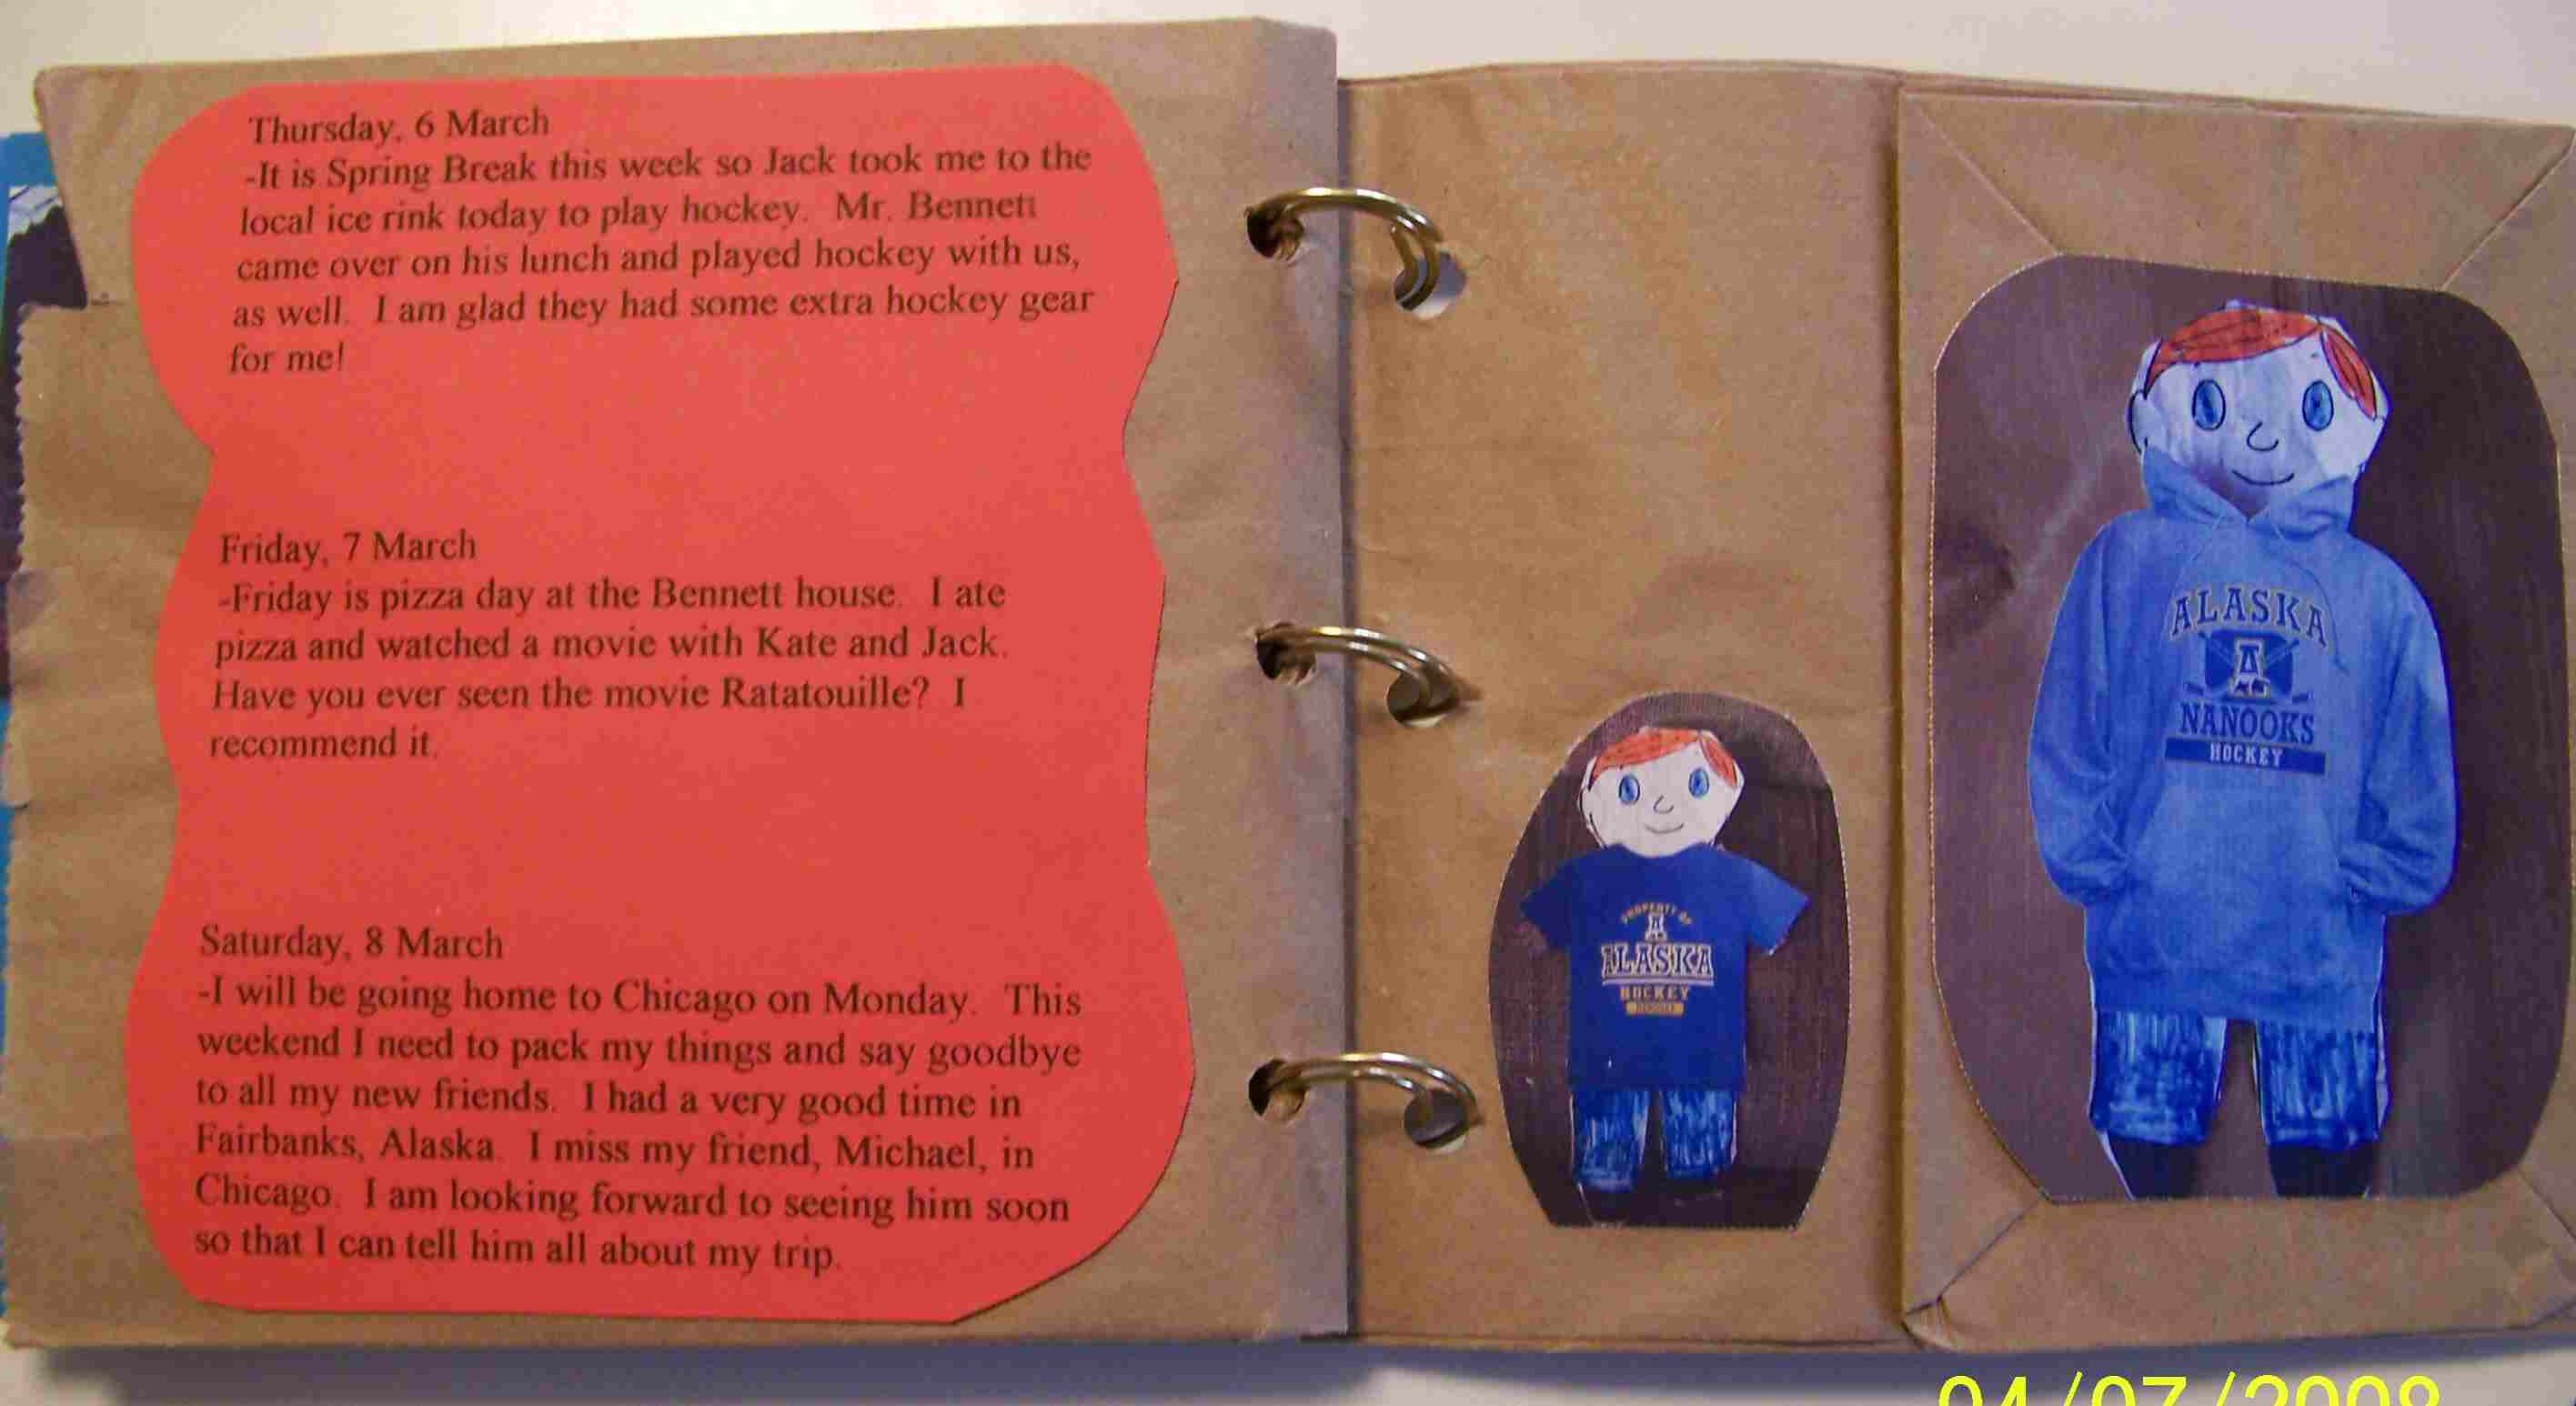 Thursday, 6 March
-It is Spring Break this week so Jack took me to the
local ice rink today to play hockey. Mr. Bennett
came over on his lunch and played hockey with us,
as well. I am glad they had some extra hockey gear
for me!
Friday, 7 March
-Friday is pizza day at the Bennett house. I ate
pizza and watched a movie with Kate and Jack.
Have you ever seen the movie Ratatouille? I
recommend it.
Saturday, 8 March
-I will be going home to Chicago on Monday. This
weekend I need to pack my things and say goodbye
to all my new friends. I had a very good time in
Fairbanks, Alaska. I miss my friend, Michael, in
Chicago. I am looking forward to seeing him soon
so that I can tell him all about my trip.
PROPERTY OF
A
ALASKA
HOCKEY
ALASKA
A
NANOOKS
HOCKEY
04/07/2008